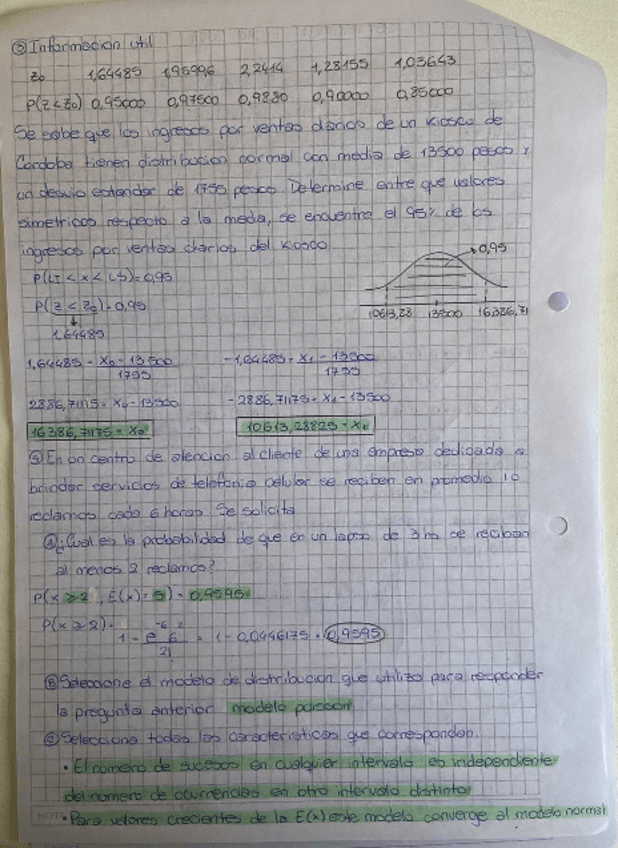 ③ Informacion util
Z₀ 1,64485 1,95996 2,2414 1,28155 1,03643
P(Z<Z₀) 0,95000 0,97500 0,9880 0,90000 0,85000
Se sabe que los ingresos por ventas diarios de un kiosco de
Cordoba tienen distribucion normal con media de 13500 pesos y
un desvio estandar de 1755 pesos. Determine entre que valores
simetricos respecto a la media, se encuentra el 95% de los
ingresos por ventas diarios del kiosco
P(LI < x < LS)=0,95
0,95
P(Z < Z₀)=0,95
1,64485
10613,28 13500 16386,71
1,64485 = X₀ - 13500 -1,64485 = X₁ - 13500
1755 1755
2886,71175 = X₀ - 13500 -2886,71175 = X₁ - 13500
16386,71175 = X₀ 10613,28825 = X₁
En un centro de atencion al cliente de una empresa dedicada a
brindar servicios de telefonia celular se reciben en promedio 10
reclamos cada 6 horas. Se solicita
ⓐ ¿Cual es la probabilidad de que en un lapso de 3 hs se reciban
al menos 2 reclamos?
P(x ≥ 2 ; E(x)= 5) = 0,9595
P(x ≥ 2) =
1 - e⁻⁶ 6² = 1 - 0,0446175 = 0,9595
2!
ⓑ Seleccione el modelo de distribucion que utilizo para responder
la pregunta anterior modelo poisson
ⓒ Selecciona todas las caracteristicas que correspondan.
• El numero de sucesos en cualquier intervalo es independiente
del numero de ocurrencias en otro intervalo distinto
NOTA • Para valores crecientes de la E(x) este modelo converge al modelo normal